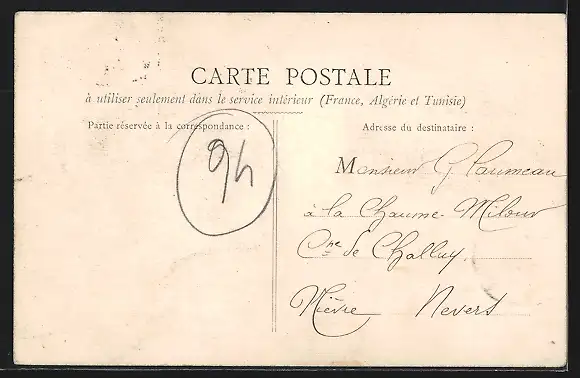 CARTE POSTALE
à utiliser seulement dans le service intérieur (France, Algérie et Tunisie)
Partie réservée à la correspondance :
Adresse du destinataire :
94
Monsieur G Paumeau
à la Chaume-Milour
Cne de Challuy
Nièvre Nevers